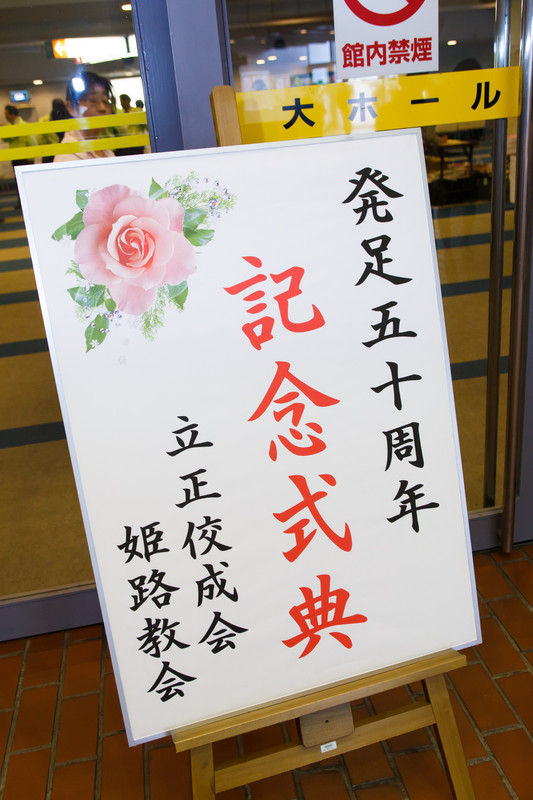 館内禁煙
大ホール
発足五十周年
記念式典
立正佼成会
姫路教会